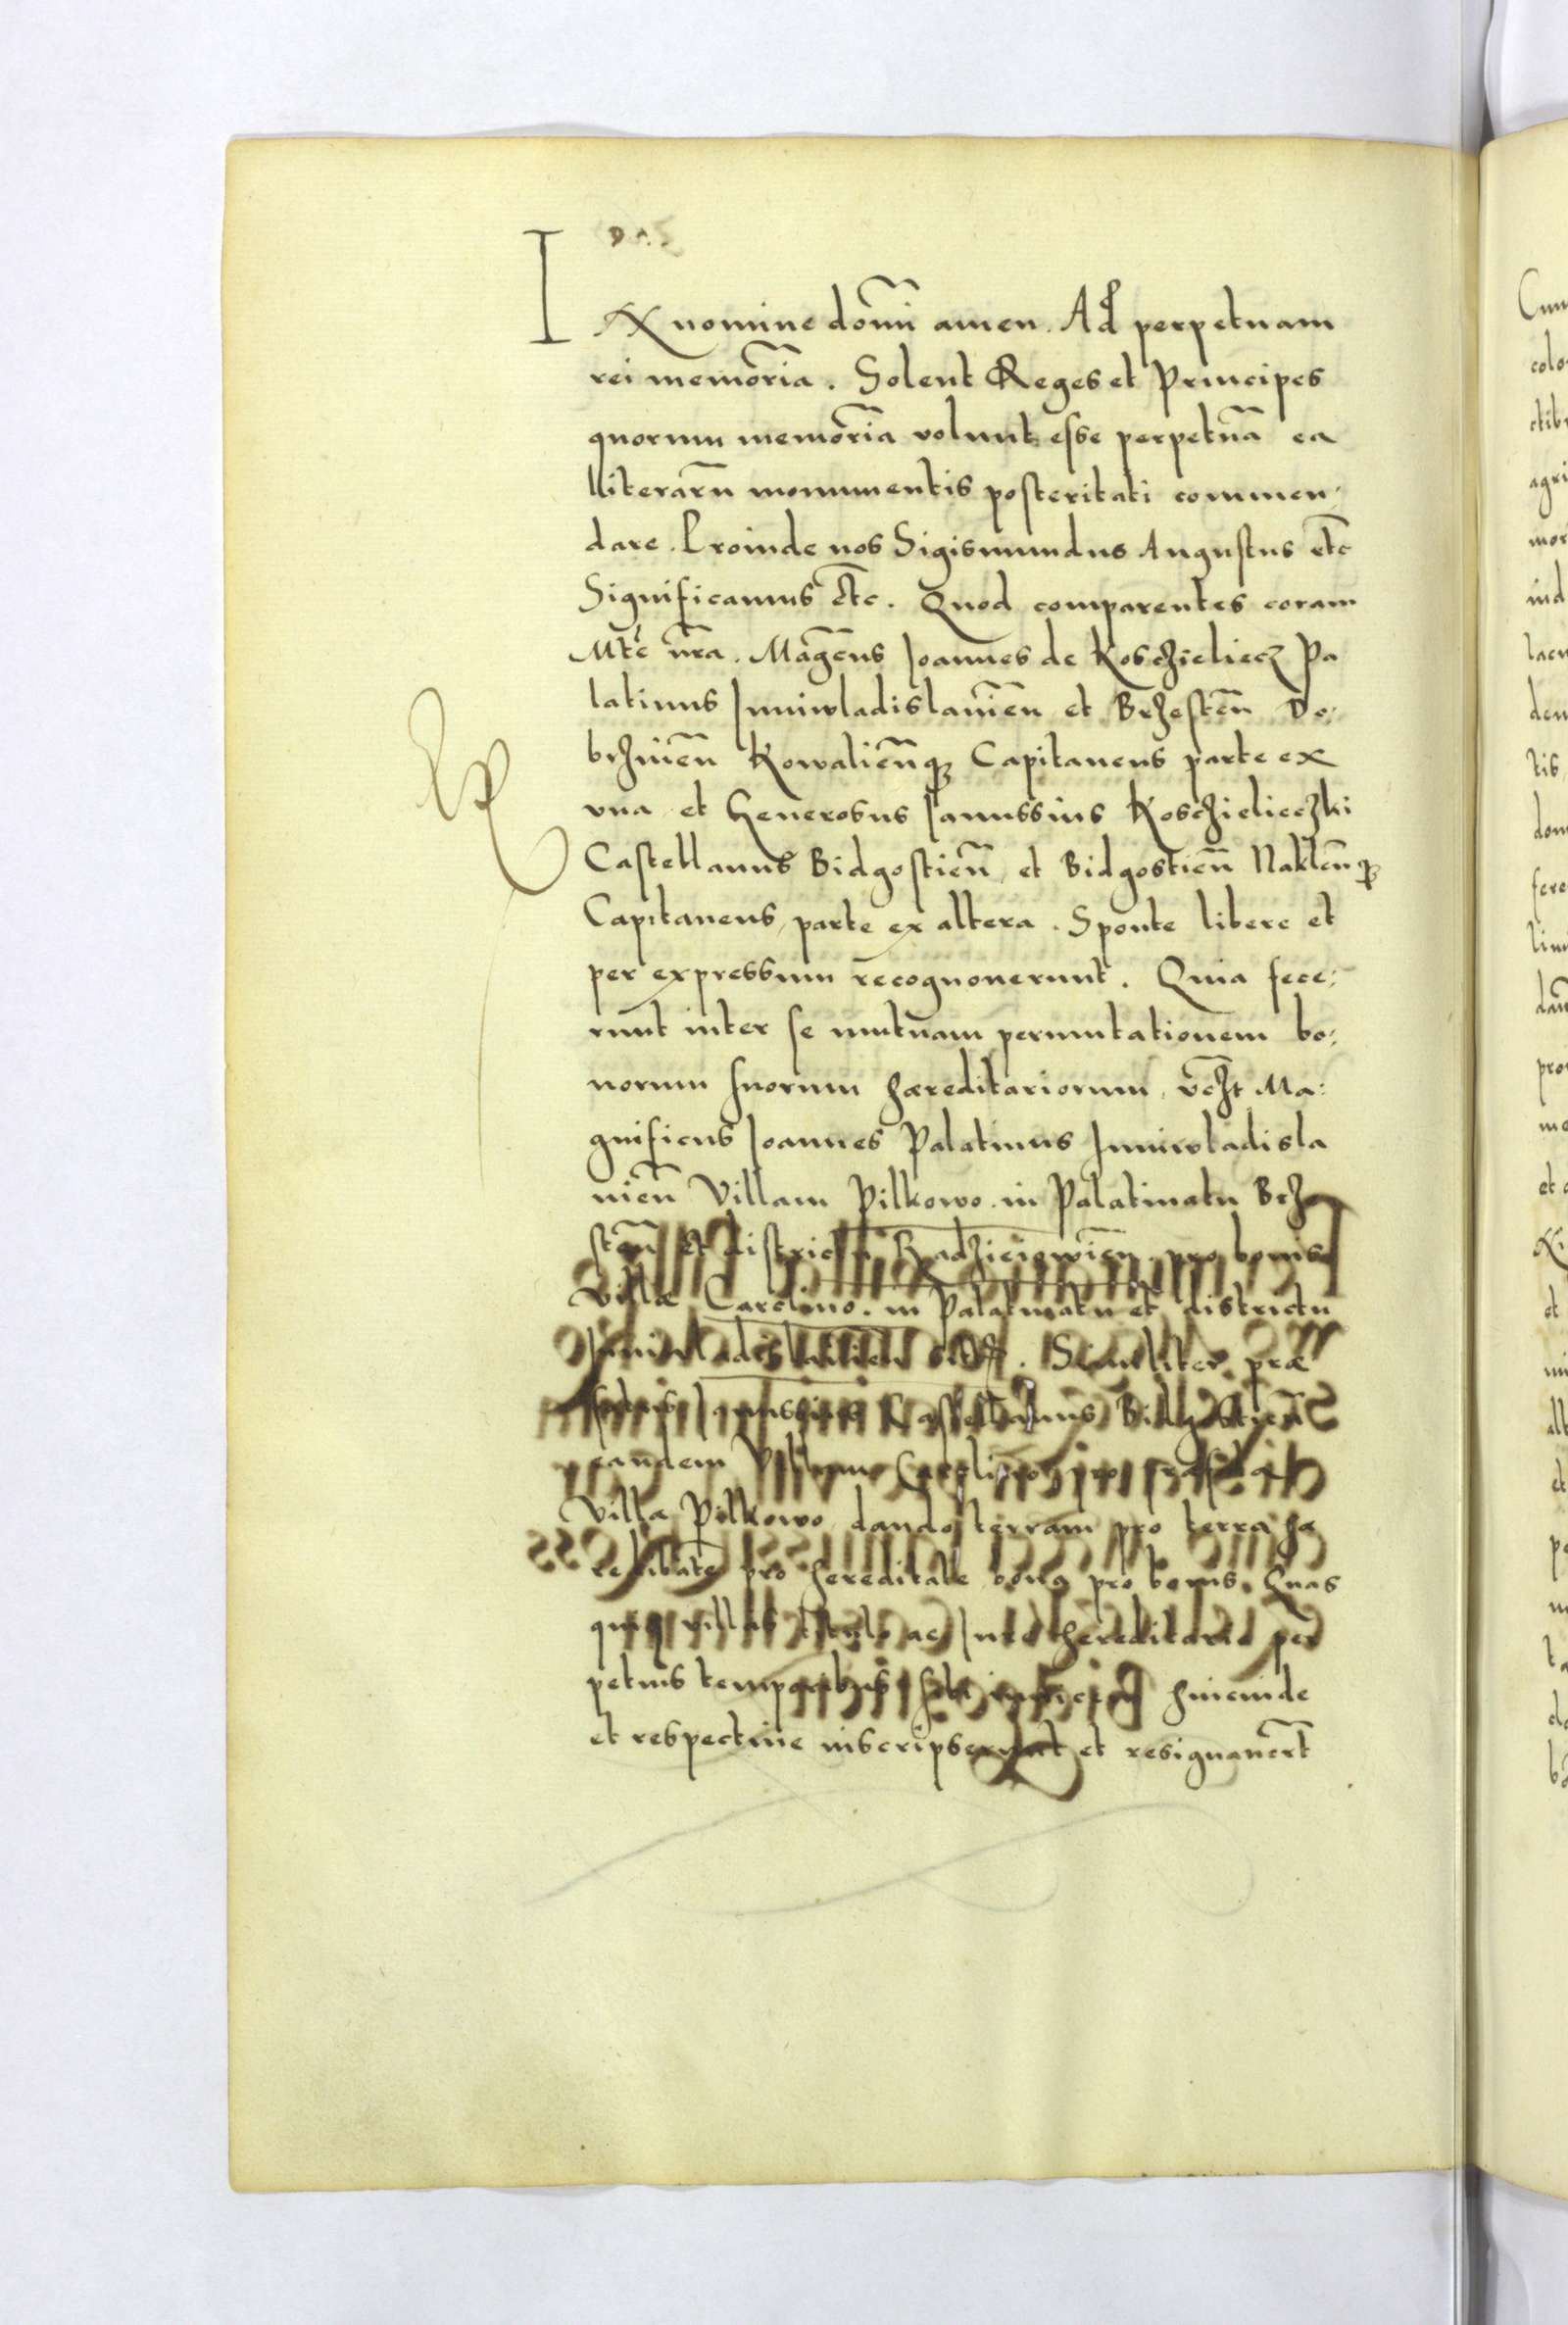 IN nomine domi amen. Ad perpetuam
rei memoria. Solent Reges et Principes
quorum memoria volunt esse perpetua ea
lliteraru monumentis posteritati commen,
dare. Proinde nos Sigismundus Augustus etc
Significamus etc. Quod comparentes coram
Mte nra. Magcus Joannes de Koszczieliecz Pa
latinus Juniwladislauien et Brzesten Do,
brzinen Kowalienq Capitaneus parte ex
vna et Generosus Janussius Koszczielieczki
Castellanus Bidgostien, et Bidgostien Naklenq
Capitaneus, parte ex altera. Sponte libere et
per expressum recognouerunt. Quia fece,
runt inter se mutuam permutationem bo,
norum suorum haereditariorum, vczt Ma:
gnificus Joannes Palatinus Juniwladisla
uien Villam Pilkowo in Palatinatu Brze
sten et districtu Radzieiewien pro bonis
Villae Carolino. in Palatinatu et districtu
Juniwladislauien. Similiter prae
Janussius Castellanus Bidgostien
eandem Villam Carolino pro
Villa Pilkowo dando terram pro terra hae
reditate pro hereditate bona pro bonis. Suas
villas titulo ac Jure hereditario per
petuis temporibus sibi hincinde
et respectiue inscripserunt et resignauert